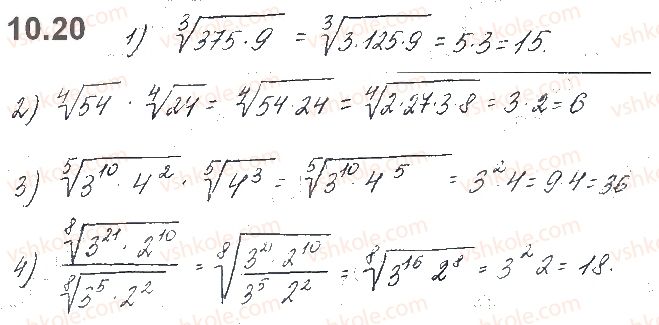 10.20 1) ∛(375·9) = ∛(3·125·9) = 5·3 = 15.
2) ∜54 · ∜24 = ∜(54·24) = ∜(2·27·3·8) = 3·2 = 6
3) ⁵√(3¹⁰·4²) · ⁵√(4³) = ⁵√(3¹⁰·4⁵) = 3²·4 = 9·4 = 36
4) ⁸√(3²¹·2¹⁰) / ⁸√(3⁵·2²) = ⁸√((3²¹·2¹⁰)/(3⁵·2²)) = ⁸√(3¹⁶·2⁸) = 3²·2 = 18.
vshkole.com